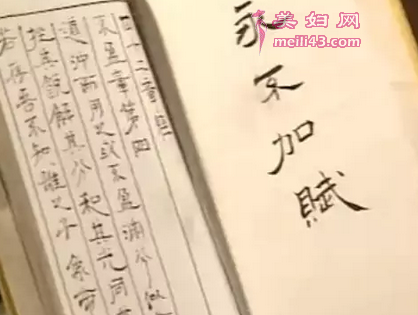 美妇网
meili43.com
永不加賦
四十二章經
不盈章第四
道沖而用之或不盈淵兮似
挫其銳解其分和其光同
若存吾不知誰之子象帝